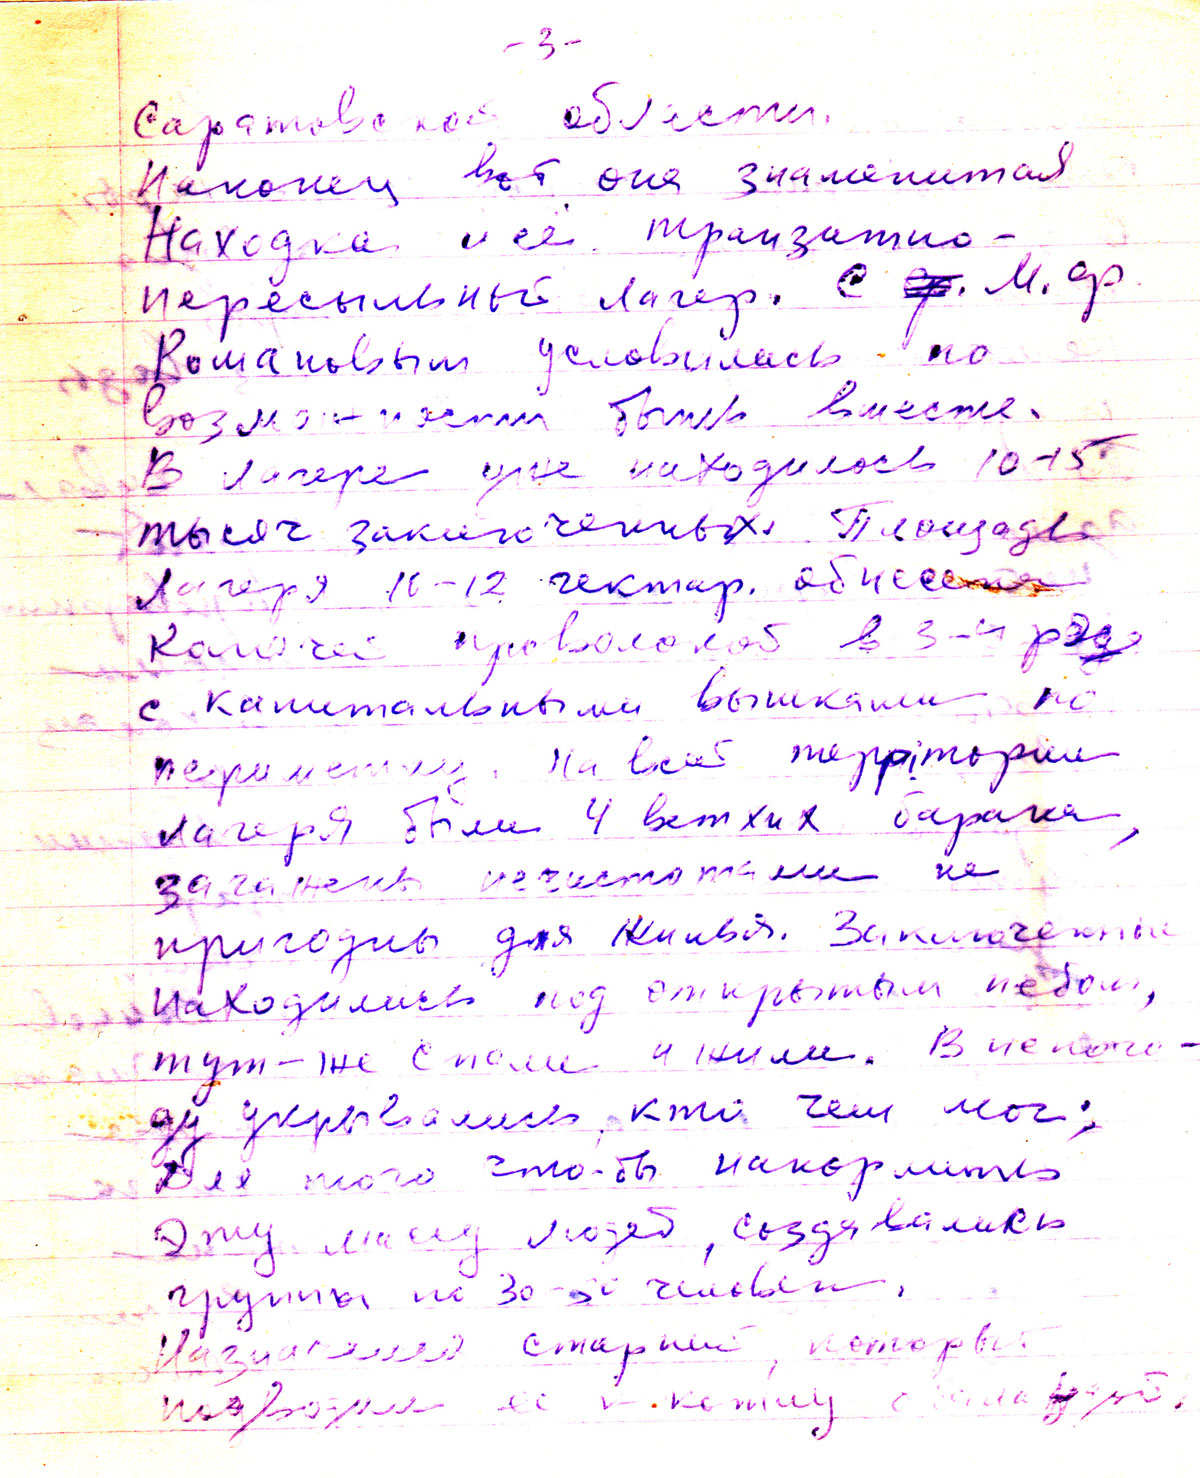 - 3 -
Саратовской области.
Наконец вот она знаменитая
Находка и её транзитно-
пересыльный лагер. С М. Ф.
Романовым условились по
возможности быть вместе.
В лагере уже находилось 10-15
тысяч заключенных. Площадь
лагеря 10-12 гектар. обнесена
колючей проволокой в 3-4 ряда
с капитальными вышками по
периметру. На всей территории
лагеря были 4 ветхих барака,
загажены нечистотами не
пригодны для жилья. Заключенные
находились под открытым небом,
тут-же спали и жили. В непого-
ду укрывались, кто чем мог;
Для того что-бы накормить
Эту массу людей, создавались
группы по 30-50 человек.
Назначался старший, который
подводил её к котлу с баландой.